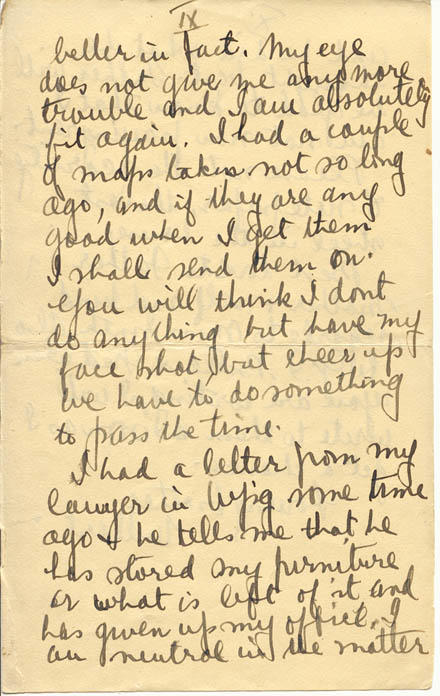 IX
better in fact. My eye
does not give me any more
trouble and I am absolutely
fit again. I had a couple
of maps taken not so long
ago, and if they are any
good when I get them
I shall send them on.
You will think I dont
do anything but have my
face shot, but cheer up
we have to do something
to pass the time.
I had a letter from my
lawyer in Wpg some time
ago & he tells me that he
has stored my furniture
or what is left of it and
has given up my office. I
am neutral in the matter